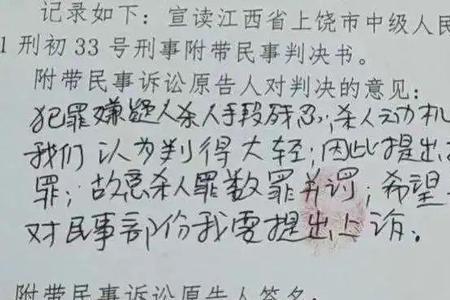 记录如下：宣读江西省上饶市中级人民
1刑初33号刑事附带民事判决书。
附带民事诉讼原告人对判决的意见：
犯罪嫌疑人杀人手段残忍；杀人动机
我们认为判得太轻；因此提出
罪；故意杀人罪数罪并罚；希望
对民事部份我要提出上诉。
附带民事诉讼原告人签名：